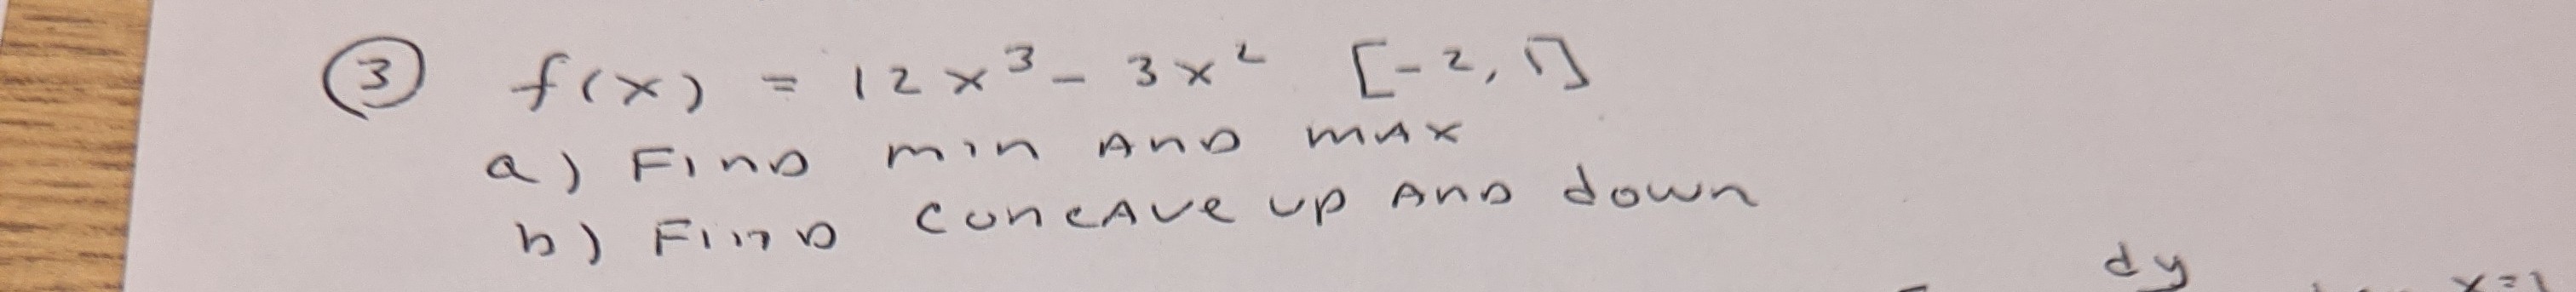 ③ f(x) = 12x³ - 3x² [-2, 1]
a) Find min and max
b) Find concave up and down
dy x=1